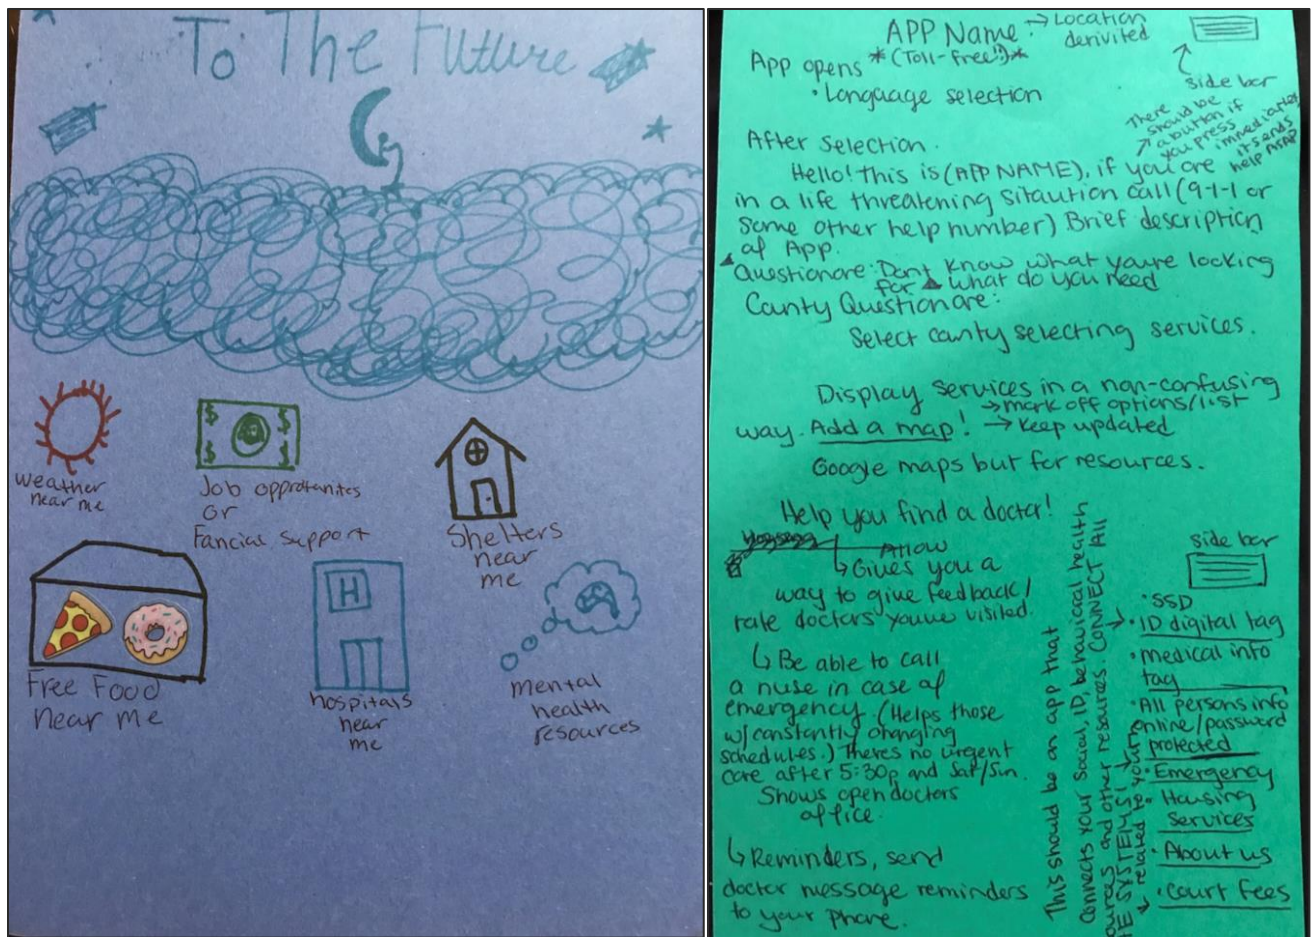 To The Future
weather
near me
Job opprotunites
or
Fancial support
Shelters
near
me
Free Food
Near me
H
hospitals
near
me
mental
health
resources
APP Name → Location
derivited
App opens *(Toll-free!)*
• Language selection
side bar
There
should be
a button if
you press
immediatley
it sends
help ASAP
After Selection.
Hello! this is (APP NAME), if you are
in a life threatening sitaution call (9-1-1 or
some other help number) Brief description
of App.
Questionare: Dont know what youre looking
for ▲ what do you need
County Questionare:
Select county selecting services.
Display services in a non-confusing
→ mark off options/list
way. Add a map! → Keep updated
Google maps but for resources.
Help you find a doctor!
Allow
↳ Gives you a
way to give feedback/
rate doctors youve visited.
↳ Be able to call
a nuse in case of
emergency (Helps those
w/constantly changing
schedules.) Theres no urgent
care after 5:30p and Sat/Sun.
Shows open doctors
office.
↳ Reminders, send
doctor message reminders
to your phone.
This should be an app that
connects your Social, ID, behavioral health
and other resources. CONNECT All
SYSTEMS!
related to your
side bar
• SSD
• ID digital tag
• medical info
tag
• All persons info
online/password
protected
• Emergency
• Housing
services
• About us
• Court Fees